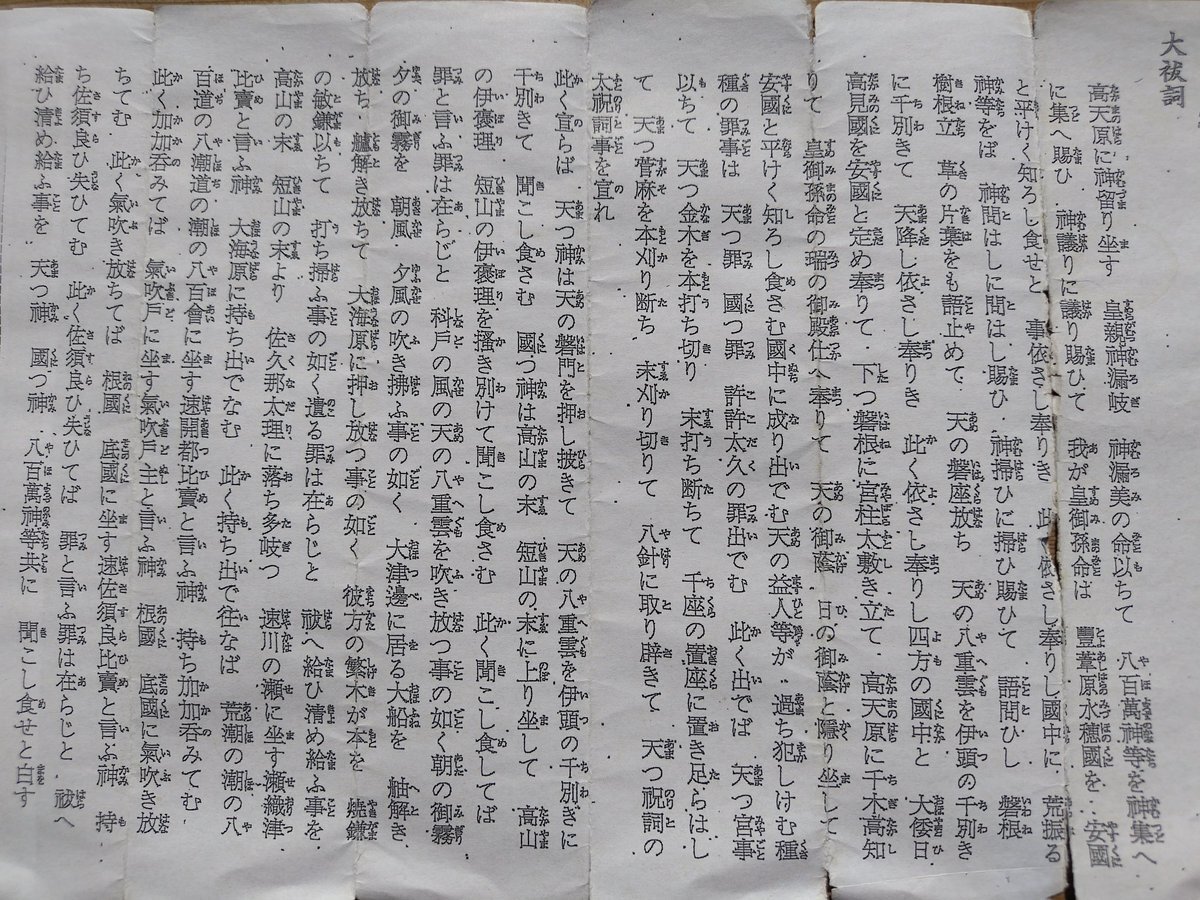 大祓詞
高天原に神留り坐す　皇親神漏岐　神漏美の命以ちて　八百萬神等を神集へ
に集へ賜ひ　神議りに議り賜ひて　我が皇御孫命は　豐葦原水穗國を　安國
と平けく知ろし食せと　事依さし奉りき　此く依さし奉りし國中に　荒振る
神等をば　神問はしに問はし賜ひ　神掃ひに掃ひ賜ひて　語問ひし　磐根
樹根立　草の片葉をも語止めて　天の磐座放ち　天の八重雲を伊頭の千別き
に千別きて　天降し依さし奉りき　此く依さし奉りし四方の國中と　大倭日
高見國を安國と定め奉りて　下つ磐根に宮柱太敷き立て　高天原に千木高知
りて　皇御孫命の瑞の御殿仕へ奉りて　天の御蔭　日の御蔭と隱り坐して
安國と平けく知ろし食さむ國中に成り出でむ天の益人等が　過ち犯しけむ種
種の罪事は　天つ罪　國つ罪　許許太久の罪出でむ　此く出でば　天つ宮事
以ちて　天つ金木を本打ち切り　末打ち断ちて　千座の置座に置き足らはし
て　天つ菅麻を本刈り断ち　末刈り切りて　八針に取り辟きて　天つ祝詞の
太祝詞事を宣れ
此く宣らば　天つ神は天の磐門を押し披きて　天の八重雲を伊頭の千別きに
千別きて　聞こし食さむ　國つ神は高山の末　短山の末に上り坐して　高山
の伊褒理　短山の伊褒理を搔き別けて聞こし食さむ　此く聞こし食してば
罪と言ふ罪は在らじと　科戸の風の天の八重雲を吹き放つ事の如く　朝の御霧
夕の御霧を　朝風　夕風の吹き拂ふ事の如く　大津邊に居る大船を　舳解き
放ち　艫解き放ちて　大海原に押し放つ事の如く　彼方の繁木が本を　燒鎌
の敏鎌以ちて　打ち掃ふ事の如く遺る罪は在らじと　祓へ給ひ清め給ふ事を
高山の末　短山の末より　佐久那太理に落ち多岐つ　速川の瀬に坐す瀬織津
比賣と言ふ神　大海原に持ち出でなむ　此く持ち出で往なば　荒潮の潮の八
百道の八潮道の潮の八百會に坐す速開都比賣と言ふ神　持ち加加呑みてむ
此く加加呑みてば　氣吹戸に坐す氣吹戸主と言ふ神　根國　底國に氣吹き放
ちてむ　此く氣吹き放ちてば　根國　底國に坐す速佐須良比賣と言ふ神　持
ち佐須良ひ失ひてむ　此く佐須良ひ失ひてば　罪と言ふ罪は在らじと　祓へ
給ひ清め給ふ事を　天つ神　國つ神　八百萬神等共に　聞こし食せと白す